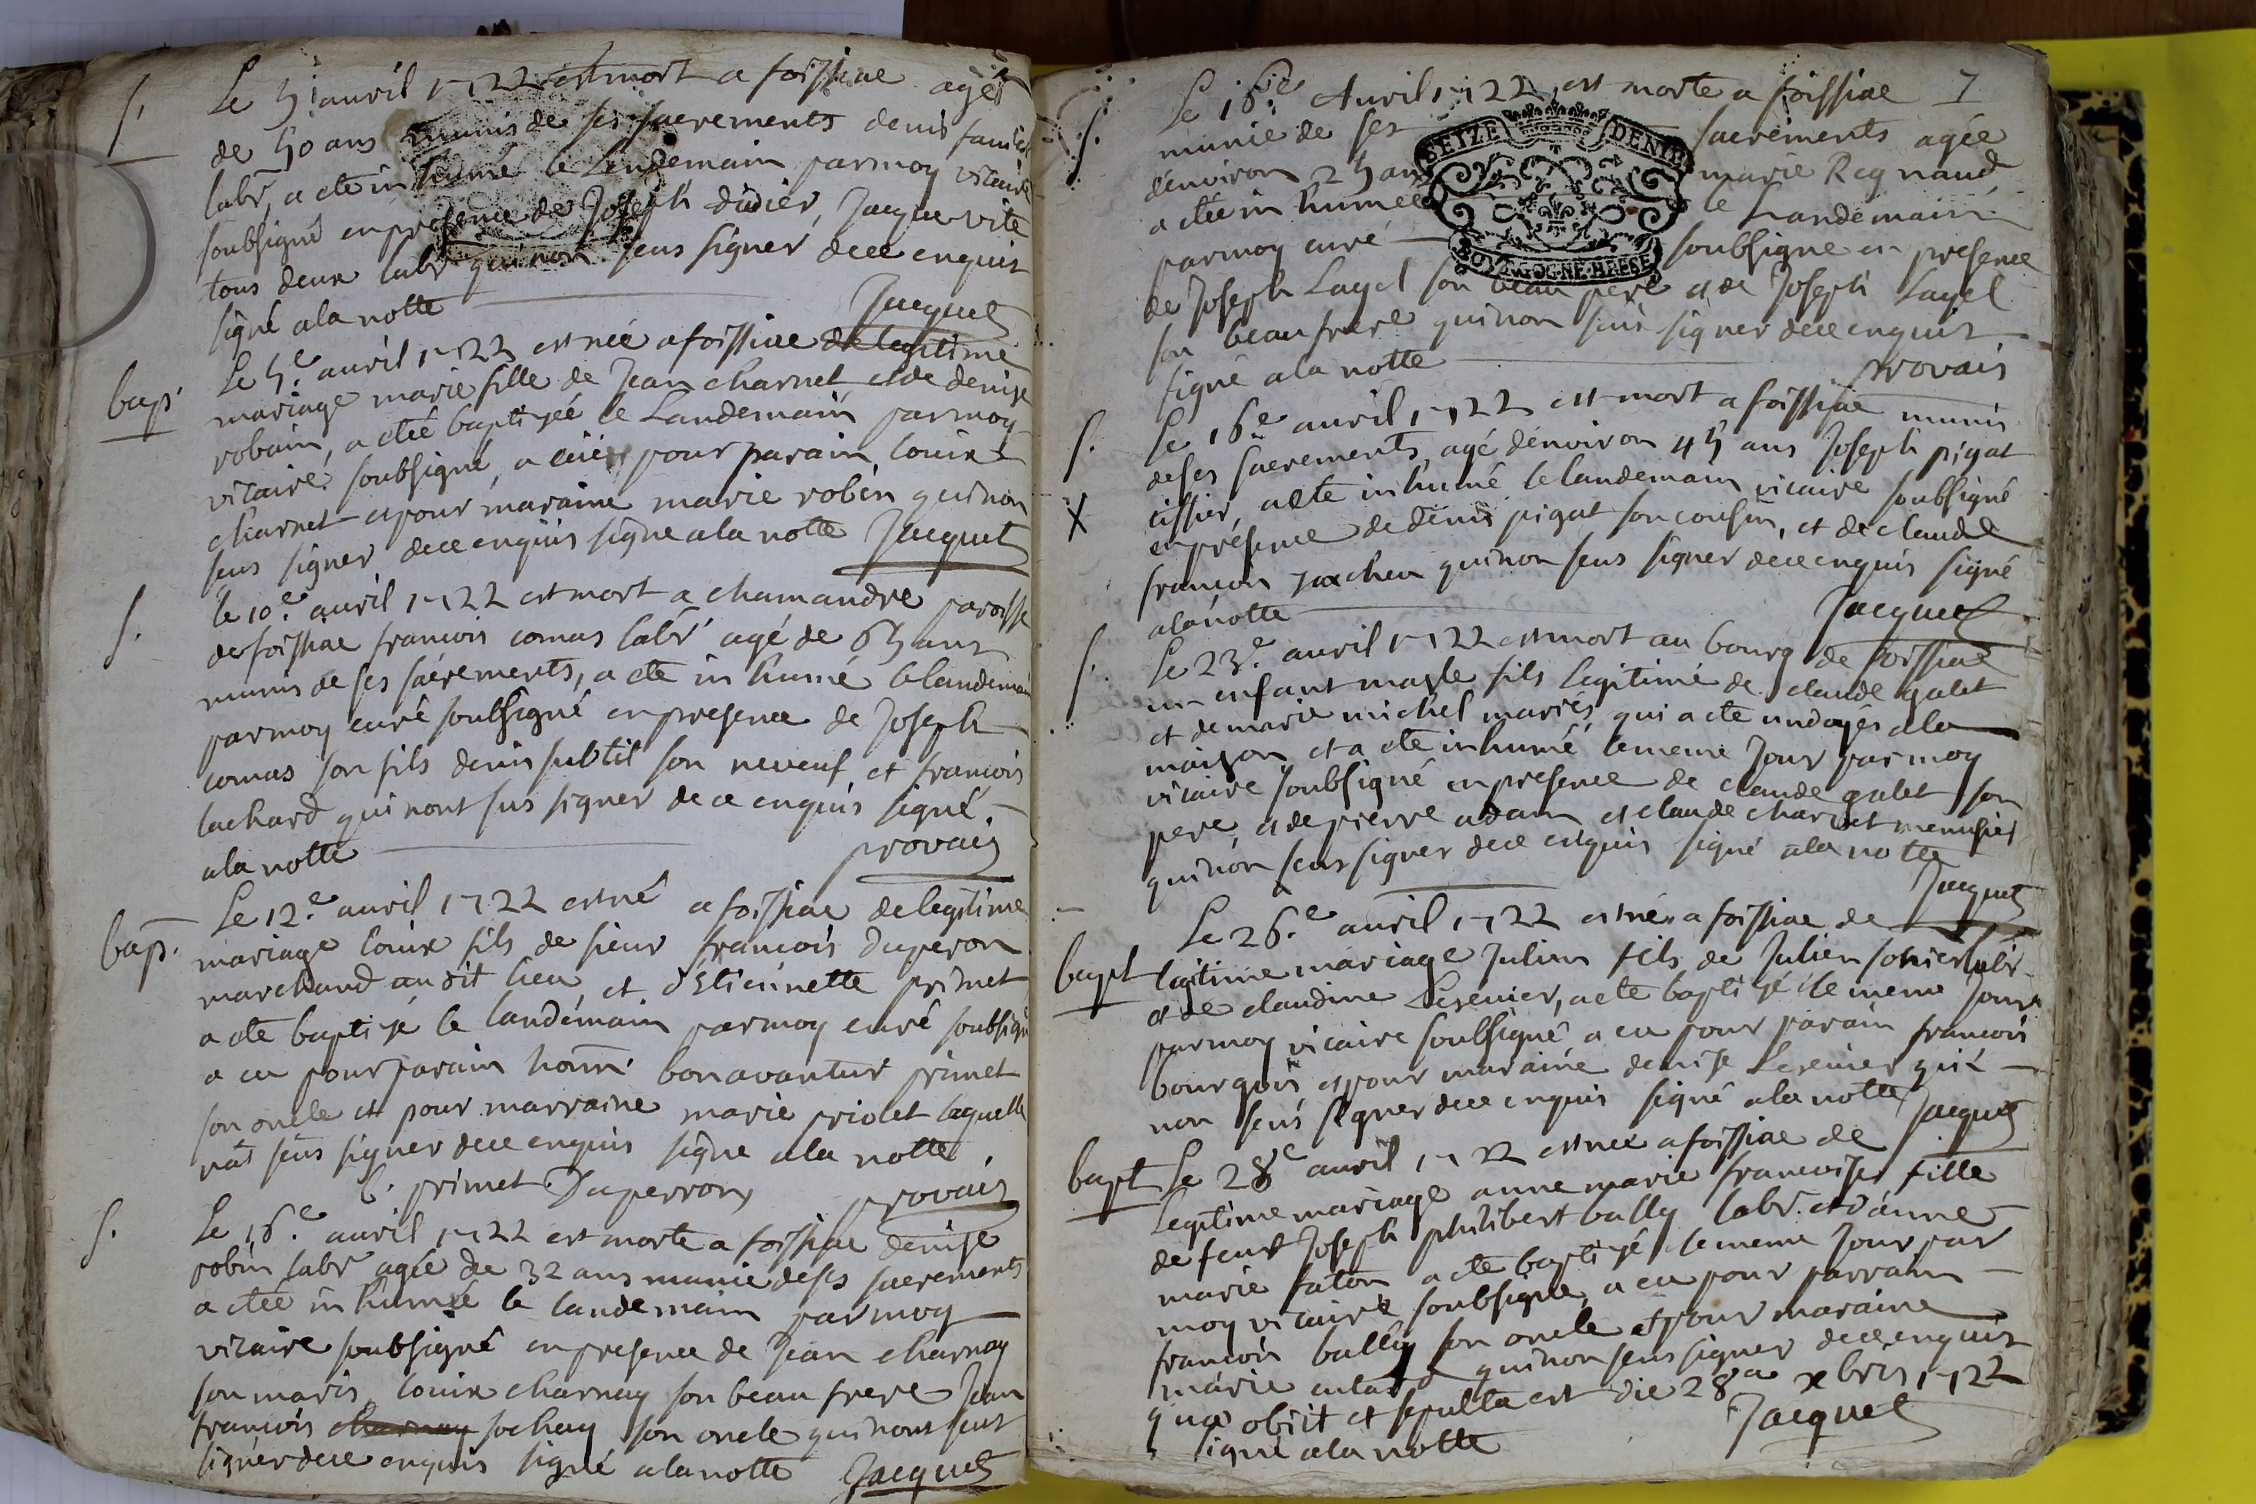 s.
Le 5e avril 1722 est mort a foissiac agé
de 50 ans munis de ses sacrements denis
labr, a eté inhumé le Lendemain parmoy vicaire
soubsigné en presence de Joseph didier, Jacque vite
tous deux labr qui non seus signer dece enquis
signé ala notte Jacquet
bap.
Le 5.e avril 1722 est née a foissiac de legitime
mariage marie fille de Jean charnet et de denise
robain, a eteé baptizeé le Landemain parmoy
vicaire soubsigné, a eüe pour parain, louix
charnet et pour maraine marie robin qui non
seus signer dece enquis signe ala notte Jacquet
s.
le 10.e avril 1722 est mort a chamandre paroisse
de foissiac francois comas labr agé de 65 ans
munis de ses sacrements, a ete inhumé le landemain
parmoy curé soubsigné en presence de Joseph
comas son fils denis subtil son neveuf et francois
lachard qui nont sus signer de ce enquis signé
ala notte provais
bap.
Le 12.e avril 1722 est né a foissiac de legitime
mariage louix fils de sieur francois duperon
marchand au dit lieu et d'Etiennette primet
a ete baptizé le landemain parmoy curé soubsigné
a eu pour parain honn. bonavantur primet
son oncle et pour marraine marie priolet laquelle
nat seus signer dece enquis signe ala notte
primet Duperron provais
s.
Le 16.e avril 1722 est morte a foissiac denise
robin labr agée de 32 ans munie deses sacrements
a eteé inhumée le landemain parmoy
vicaire soubsigné en presence de Jean charnay
son maris, louix charnay son beau frere Jean
francois charnay sochay son oncle qui nont seus
signer dece enquis signé ala notte Jacquet
7
s.
Le 16.e Avril 1722 est morte a foissiac
munie de ses sacrements agée
denviron 25 ans marie Regnaud
a eteé inhumeé le Landemain
parmoy curé soubsigne en presence
de Joseph Layel son beau pere et de Joseph Layel
son beau frere qui non seus signer dece enquis
signé ala notte provais
SEIZE DENIE
BOVRGOGNE·BRESSE
s.
X
Le 16.e avril 1722 est mort a foissiac munis
deses sacrements, agé denviron 45 ans Joseph pigat
tissier, a ete inhumé le landemain vicaire soubsigné
en présence de denis pigat son cousin, et de claude
francois qui non seus signer dece enquis signé
ala notte Jacquet
s.
Le 23.e avril 1722 est mort au bourg de foissiac
un enfant masle fils legitime de claude galet
et de marie michel mariés, qui a ete undoyés ala
maison et a ete inhumé le meme Jour par moy
vicaire soubsigné en presence de claude galet son
pere, et de pierre adam et claude charnet menusier
qui non seus signer dece enquis signé ala notte
Jacquet
bapt
Le 26.e avril 1722 est né a foissiac de
legitime mariage Julien fils de Julien sonier labr
et de claudine Leseuier, a ete baptizé le meme Jour
parmoy vicaire soubsigné, a eu pour parain francois
bourgois et pour maraine denise Leseuier qui
non seus signer dece enquis signé ala notte Jacquet
bapt
Le 28e avril 1722 est nee a foissiac de
Legitime mariage anne marie francoise fille
de feux Joseph philibert bally labr. et d'anne
marie faton a ete baptizé le meme Jour par
moy vicaire soubsigne, a eu pour parrain
francois bally son oncle et pour maraine
marie qui non seus signer dece enquis
quae obiit et sepulta est die 28a xbris 1722
signé ala notte Jacquet